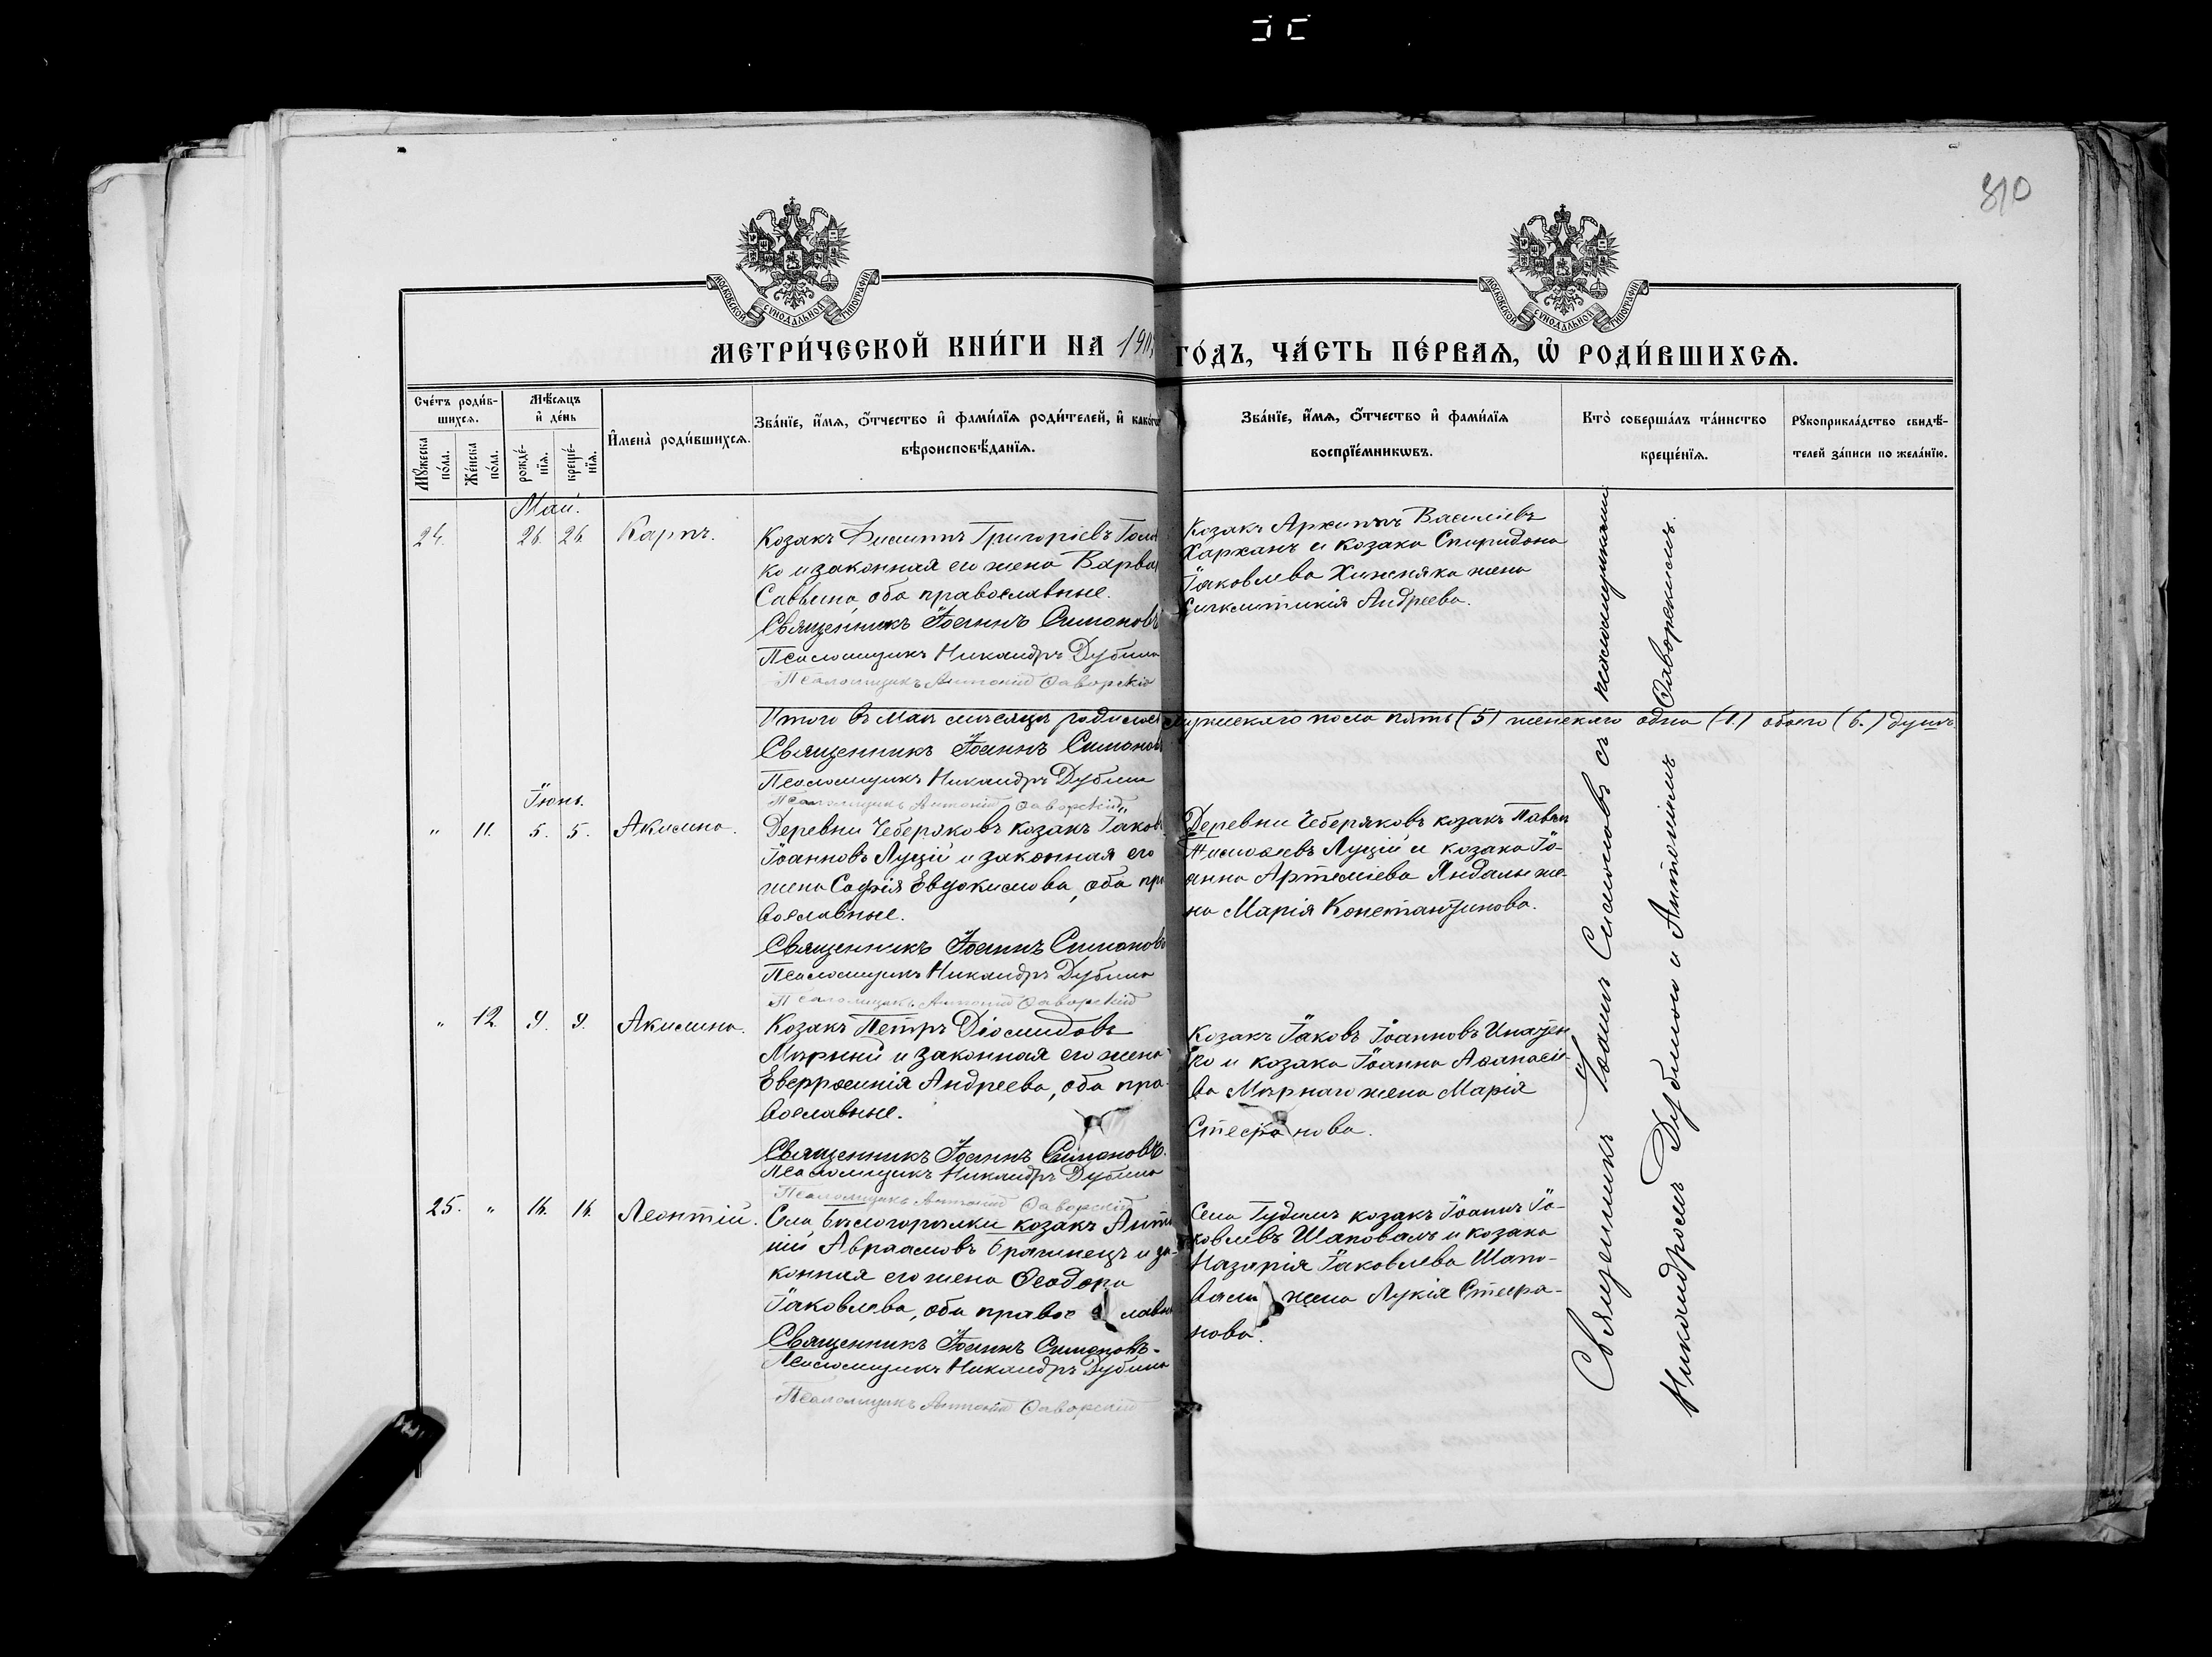 310
МОСКОВСКОЙ СУНОДАЛЬНОЙ ТИПОГРАФІИ
МОСКОВСКОЙ СУНОДАЛЬНОЙ ТИПОГРАФІИ
МЕТРИ́ЧЕСКОЙ КНИ́ГИ НА 191
ГО́ДЪ, ЧА́СТЬ ПЕ́РВАѦ, Ѡ РОДИ́ВШИХСѦ.
Сче́тъ роди́в-
шихсѧ.
Мꙋ́жеска по́ла.
Же́нска по́ла.
Мѣ́сѧцъ
и҆ де́нь
рожде́-
нїѧ.
креще́-
нїѧ.
И҆мена̀ роди́вшихсѧ.
Зва́нїе, и҆́мѧ, ѻ҆́тчество и҆ фами́лїѧ роди́телей, и҆ како́гѡ
вѣроисповѣ́данїѧ.
Зва́нїе, и҆́мѧ, ѻ҆́тчество и҆ фами́лїѧ
воспрїе́мникѡвъ.
Кто̀ соверша́лъ та́инство
креще́нїѧ.
Рꙋкоприкла́дство свидѣ́-
телей за́писи по жела́нїю.
Май.
24. 26. 26. Карпъ.
Козакъ Григоріевъ
ко и законная его жена Варва
Саввина, оба православные.
Священникъ Іоаннъ Симоновъ
Псаломщикъ Никандръ Дубина
Псаломщикъ Антоній Ѳаворскій
Козакъ Архиппъ Василіевъ
Харханъ и козака Спиридона
Іаковлева Хижняка жена
Синклитикія Андреева.
Итого въ маѣ мѣсяцѣ родилось мужескаго пола пять (5) женскаго одна (1.) обоего (6.) душъ
Священникъ Іоаннъ Симоновъ
Псаломщикъ Никандръ Дубина
Псаломщикъ Антоній Ѳаворскій
Іюнь.
" 11. 5. 5. Акилина.
Деревни Чеберяковъ козакъ Іаковъ
Іоанновъ Луцій и законная его
жена Софія Евдокимова, оба пра
вославные.
Священникъ Іоаннъ Симоновъ
Псаломщикъ Никандръ Дубина
Псаломщикъ Антоній Ѳаворскій
Деревни Чеберяковъ козакъ Павелъ
Тимоѳеевъ Луцій и козака Іо-
анна Артеміева Яндалы же-
на Марія Константинова.
" 12. 9. 9. Акилина.
Козакъ Петръ Діомидовъ
Мѣрный и законная его жена
Евфросинія Андреева, оба пра-
вославные.
Священникъ Іоаннъ Симоновъ.
Псаломщикъ Никандръ Дубина
Псаломщикъ Антоній Ѳаворскій
Козакъ Іаковъ Іоанновъ Ипатен
ко и козака Іоанна Аѳанасіе-
ва Мѣрнаго жена Марія
Стефанова.
25. " 16. 16. Леонтій.
Села Бѣлогорѣлки козакъ Анто
ній Авраамовъ Бражнецъ и за-
конная его жена Ѳеодора
Іаковлева, оба православн
Священникъ Іоаннъ Симоновъ.
Псаломщикъ Никандръ Дубина
Псаломщикъ Антоній Ѳаворскій
Села Гудимъ козакъ Іоаннъ Іа-
ковлевъ Шаповалъ и козака
Назарія Іаковлева Шапо-
вала жена Лукія Стефа-
нова.
Священникъ Іоаннъ Симоновъ съ псаломщиками
Никандромъ Дубиною и Антоніемъ Ѳаворскимъ.